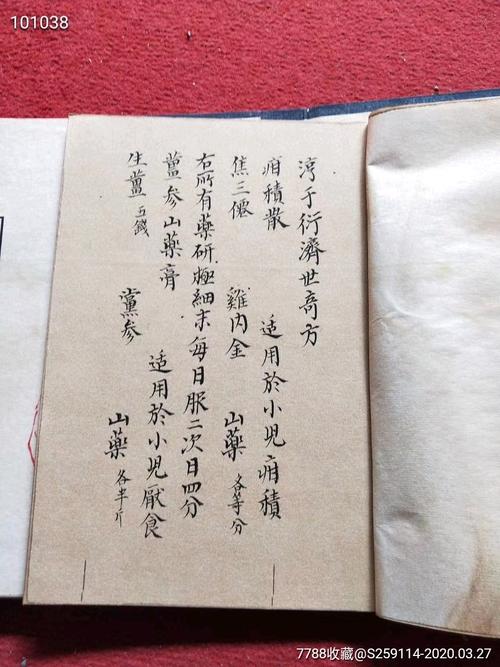 101038
淳于衍濟世奇方
疳積散 适用於小児疳積
焦三僊 雞内金 山藥 各等分
右所有藥研極細末每日服二次日四分
薑参山藥膏 适用於小児厭食
生薑 五錢 黨参 山藥 各半斤
7788收藏@S259114-2020.03.27